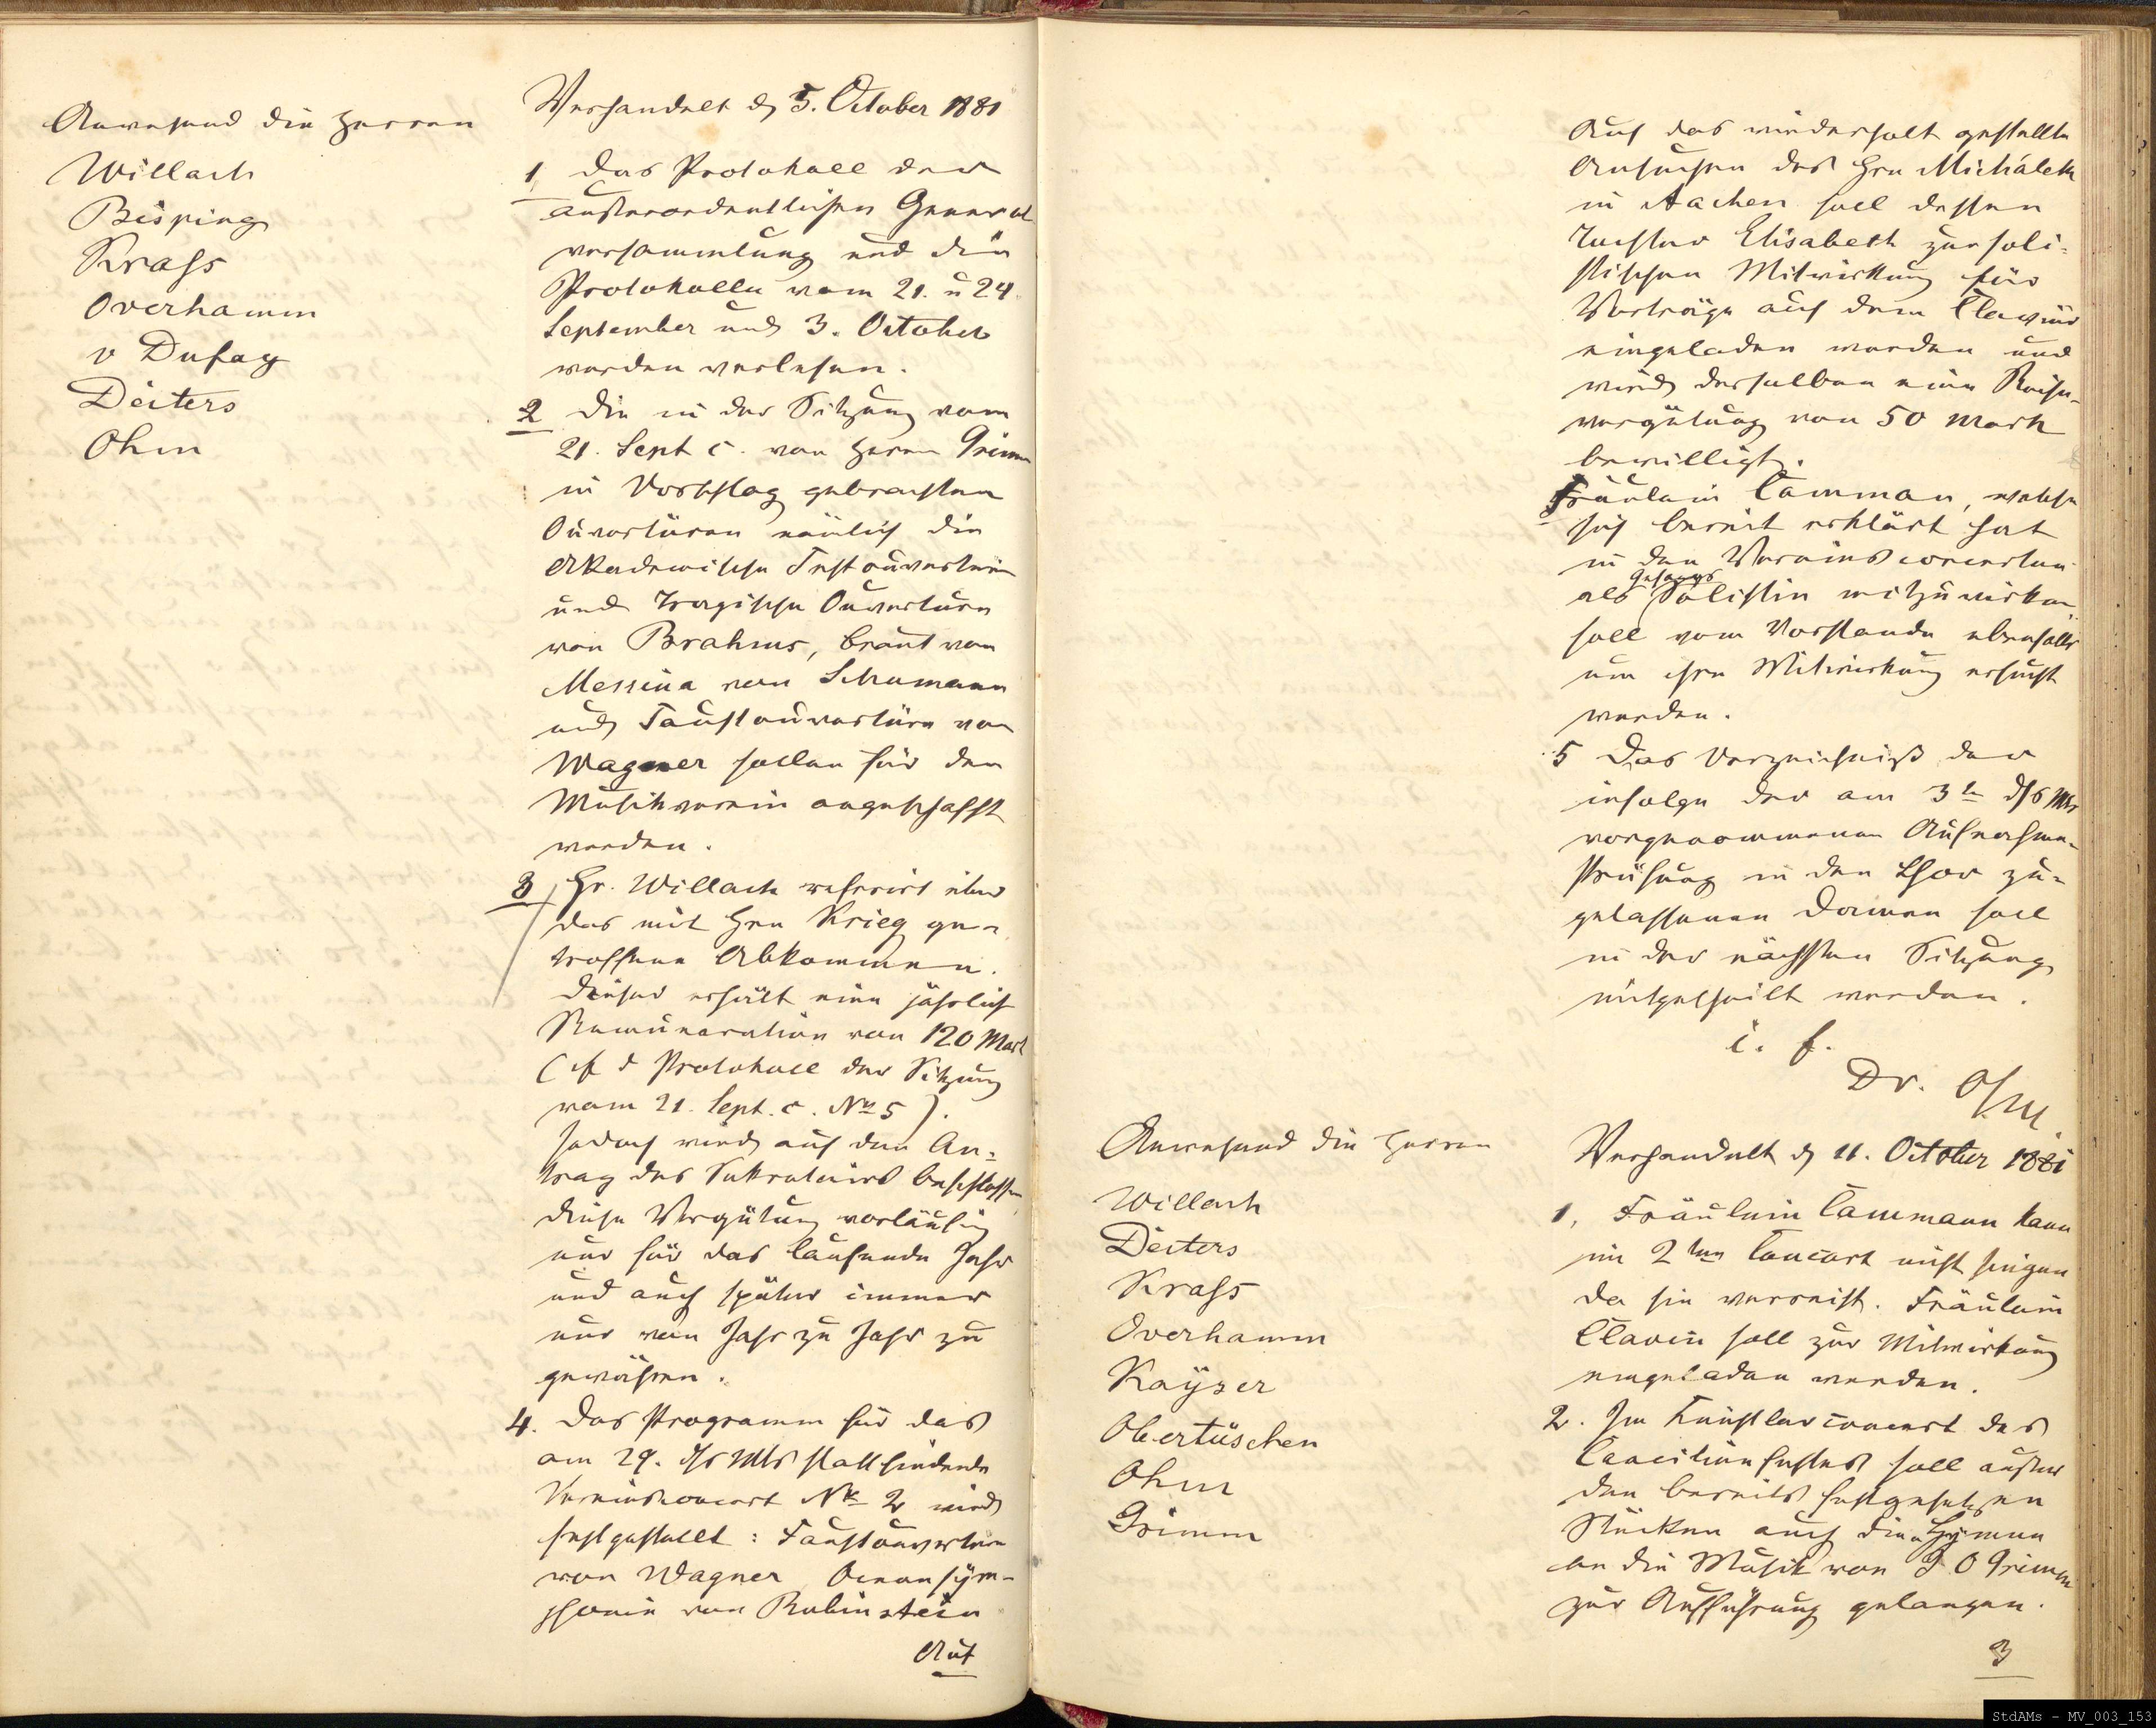 Anwesend die Herren
Willach
Bisping
Krass
Overhamm
v Dufay
Deiters
Ohm
Verhandelt d 5. October 1881
1, Das Protokoll der
außerordentlichen General
versammlung und die
Protokolle vom 21. u 24.
September und 3. October
werden verlesen.
2 Die in der Sitzung vom
21. Sept c. von Herrn Grimm
in Vorschlag gebrachten
Ouvertüren nämlich die
Akademische Festouvertüre
und Tragische Ouvertüre
von Brahms, Braut von
Messina von Schumann
und Faustouvertüre von
Wagner sollen für den
Musikverein angeschafft
werden.
3 Hr. Willach referirt über
das mit Hrn Krieg ge-
troffene Abkommen.
Dieser erhält eine jährlich
Remuneration von 120 Mark
(cf d Protokoll der Sitzung
vom 21. Sept. c. No 5).
Jedoch wird auf den An-
trag des Sekretairs beschlossen
diese Vergütung vorläufig
nur für das laufende Jahr
und auch später immer
nur von Jahr zu Jahr zu
gewähren.
4. Das Programm für das
am 29. dss Mts stattfindende
Vereinsconcert No 2 wird
festgestellt: Faustouvertüre
von Wagner Oceansym-
phonie von Rubinstein
Auf
Auf das wiederholt gestellte
Ansuchen des Hrn Michálek
in Aachen soll dessen
Tochter Elisabeth zur soli-
stischen Mitwirkung für
Vorträge auf dem Clavier
eingeladen werden und
wird derselben eine Reise-
vergütung von 50 Mark
bewilligt.
Fräulein Tamman, welche
sich bereit erklärt hat
in den Vereinsconcerten
Gesangs
als Solistin mitzuwirken
soll vom Vorstande ebenfalls
um ihre Mitwirkung ersucht
werden.
5 Das Verzeichniß der
infolge der am 3ten dss Mts
vorgenommenen Aufnahme-
prüfung in den Chor zu-
gelassenen Damen soll
in der nächsten Sitzung
mitgetheilt werden.
i. f.
Dr. Ohm
Anwesend die Herren
Willach
Deiters
Krass
Overhamm
Kayser
Obertüschen
Ohm
Grimm
Verhandelt d 11. October 1881
1, Fräulein Tammann kann
im 2ten Concert nicht singen
da sie verreist. Fräulein
soll zur Mitwirkung
eingeladen werden.
2. Im Künstlerconcert des
Caecilienfestes soll außer
den bereits festgesetzten
Stücken auch die Hymne
an die Musik von J O Grimm
zur Aufführung gelangen.
3
StdAMs - MV_003_153